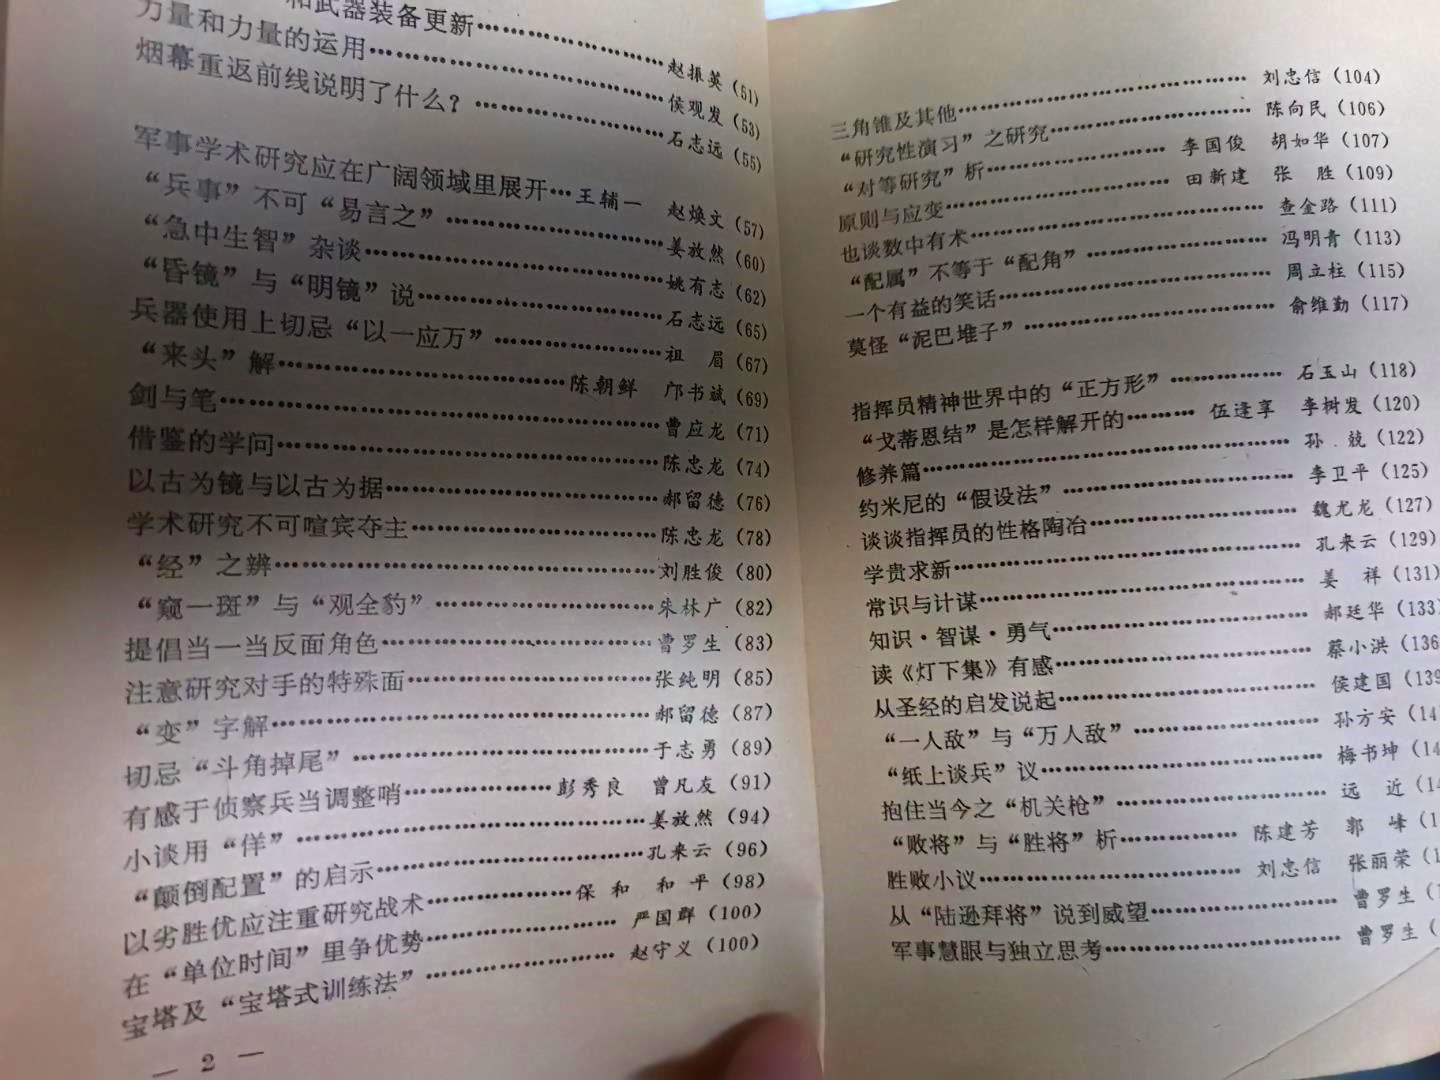 和武器装备更新………………赵振英（51）
力量和力量的运用………………侯观发（53）
烟幕重返前线说明了什么？………………石志远（55）
军事学术研究应在广阔领域里展开…王辅一 赵焕文（57）
“兵事”不可“易言之”………………姜放然（60）
“急中生智”杂谈………………姚有志（62）
“昏镜”与“明镜”说………………石志远（65）
兵器使用上切忌“以一应万”………………祖 眉（67）
“来头”解………………陈朝鲜 邝书斌（69）
剑与笔………………曹应龙（71）
借鉴的学问………………陈忠龙（74）
以古为镜与以古为据………………郝留德（76）
学术研究不可喧宾夺主………………陈忠龙（78）
“经”之辨………………刘胜俊（80）
“窥一斑”与“观全豹”………………朱林广（82）
提倡当一当反面角色………………曹罗生（83）
注意研究对手的特殊面………………张纯明（85）
“变”字解………………郝留德（87）
切忌“斗角掉尾”………………于志勇（89）
有感于侦察兵当调整哨………………彭秀良 曾凡友（91）
小谈用“佯”………………姜放然（94）
“颠倒配置”的启示………………孔来云（96）
以劣胜优应注重研究战术………………保 和 和 平（98）
在“单位时间”里争优势………………严国群（100）
宝塔及“宝塔式训练法”………………赵守义（100）
— 2 —
三角锥及其他………………刘忠信（104）
“研究性演习”之研究………………陈向民（106）
“对等研究”析………………李国俊 胡如华（107）
原则与应变………………田新建 张 胜（109）
也谈数中有术………………查金路（111）
“配属”不等于“配角”………………冯明青（113）
一个有益的笑话………………周立柱（115）
莫怪“泥巴堆子”………………俞维勤（117）
指挥员精神世界中的“正方形”………………石玉山（118）
“戈蒂恩结”是怎样解开的………伍逢享 李树发（120）
修养篇………………孙 兢（122）
约米尼的“假设法”………………李卫平（125）
谈谈指挥员的性格陶冶………………魏尤龙（127）
学贵求新………………孔来云（129）
常识与计谋………………姜 祥（131）
知识·智谋·勇气………………郝廷华（133）
读《灯下集》有感………………蔡小洪（136
从圣经的启发说起………………侯建国（139
“一人敌”与“万人敌”………………孙方安（14
“纸上谈兵”议………………梅书坤（14
抱住当今之“机关枪”………………远 近（14
“败将”与“胜将”析………………陈建芳 郭 峰（1
胜败小议………………刘忠信 张丽荣（1
从“陆逊拜将”说到威望………………曹罗生（1
军事慧眼与独立思考………………曹罗生（